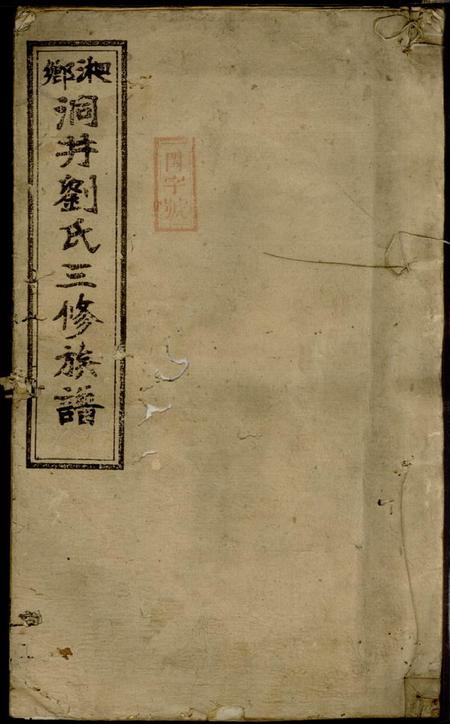 湘鄉
洞井劉氏三修族譜
字號